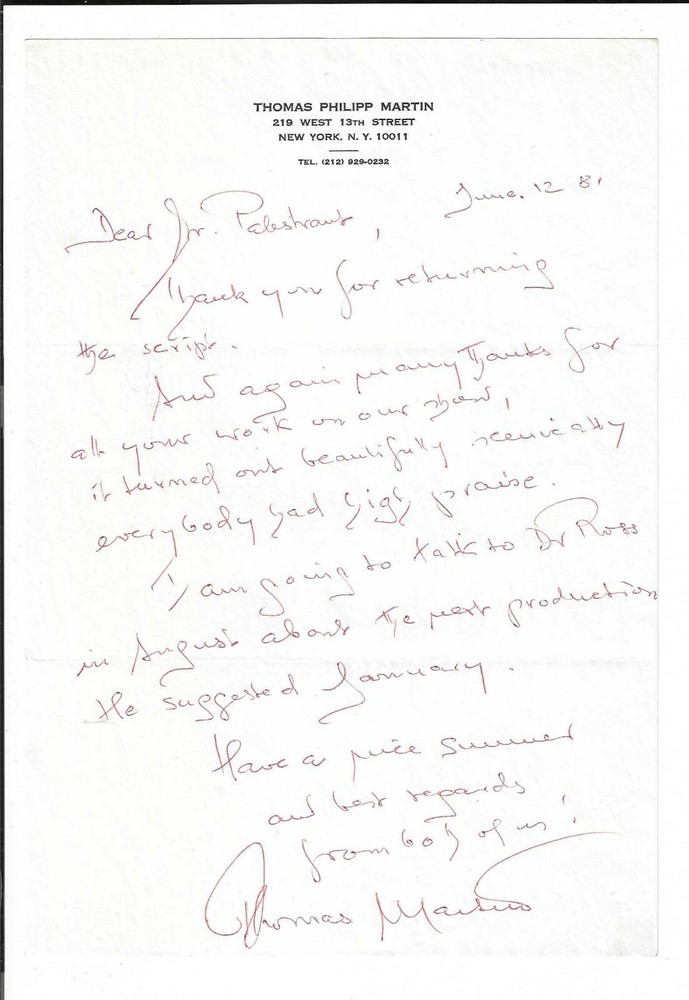 THOMAS PHILIPP MARTIN
219 WEST 13TH STREET
NEW YORK, N. Y. 10011
TEL. (212) 929-0232
June. 12 81
Dear Mr. Palestrant,
Thank you for returning
the script.
And again many thanks for
all your work on our show,
it turned out beautifully scenically
everybody had high praise.
I am going to talk to Dr Ross
in August about the next production
He suggested January.
Have a nice summer
and best regards
from both of us!
Thomas Martin